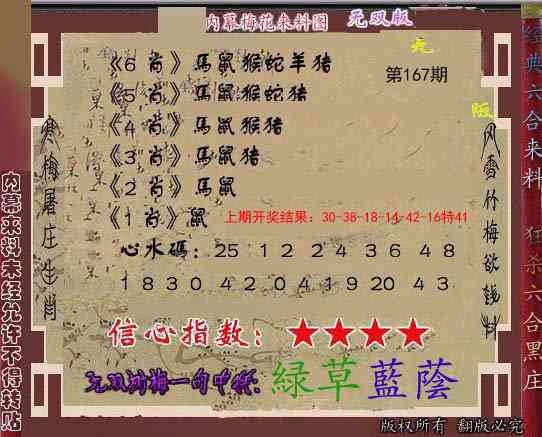 内幕梅花来料图 无双版
九
《6 肖》馬鼠猴蛇羊猪
第167期
《5 肖》馬鼠猴蛇猪
版
《4 肖》馬鼠猴猪
《3 肖》馬鼠猪
《2 肖》馬鼠
《1 肖》鼠
上期开奖结果：30-38-18-14-42-16特41
心水碼：25 12 24 36 48
18 30 42 04 19 20 43
信心指数：★★★★
无双湖梅一句中特：綠草藍蔭
版权所有 翻版必究
寒梅屠庄生肖
风雪竹梅欲钱料
内幕来料未经允许不得转贴
经典六合来料 狂杀六合黑庄